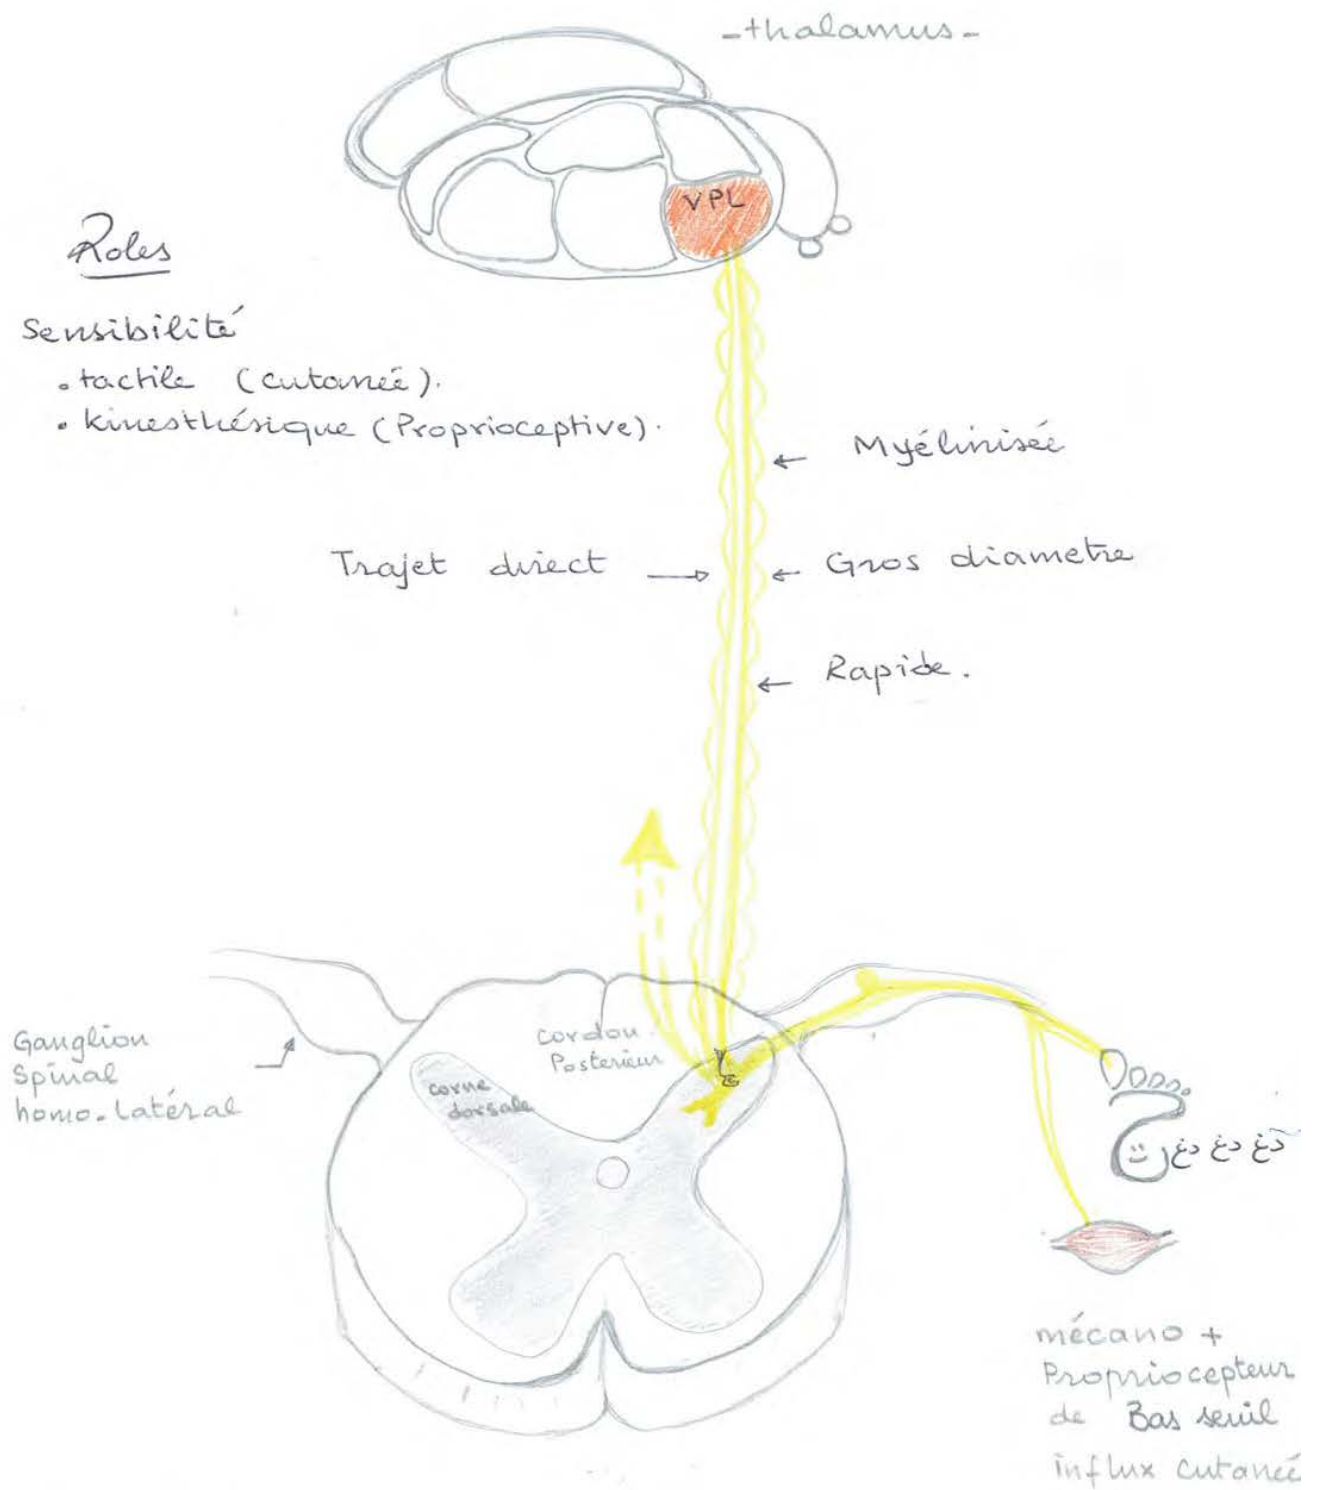 -thalamus-
VPL
Roles
Sensibilité
• tactile (cutaneé).
• kinesthésique (Proprioceptive).
Myélinisée
Trajet direct
Gros diametre
Rapide.
Ganglion
Spinal
homo-latéral
cordon
Posterieur
corne
dorsale
دغ دغ دغ
mécano +
Propriocepteur
de Bas seuil
influx cutaneé